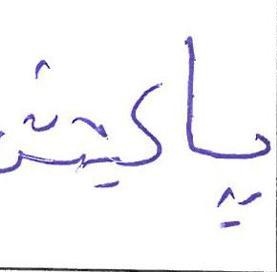 پاکیتش